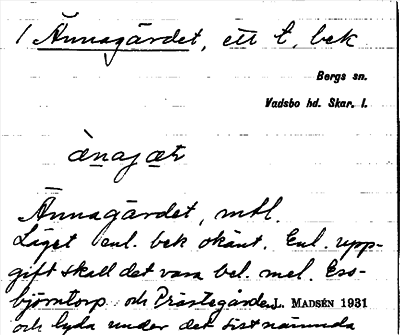 1 Ännagärdet, ett t. bek
Bergs sn.
Vadsbo hd. Skar. l.
Ännagärdet, mtl.
Läget enl. bek okänt. Enl. upp-
gift skall det vara bel. mel. Ess-
björntorp och Prästegården J. MADSÉN 1931
och lyda under det sistnämnda